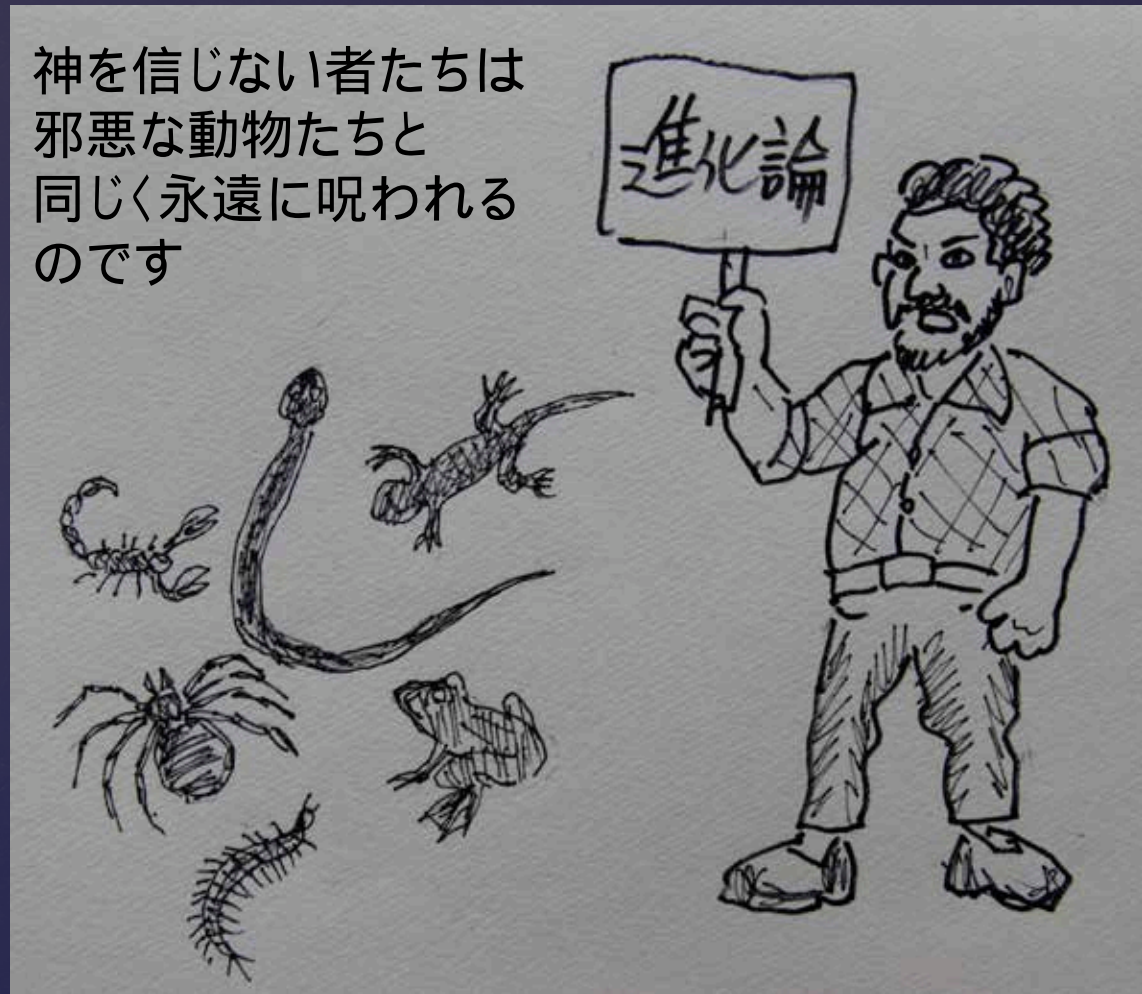 神を信じない者たちは
邪悪な動物たちと
同じく永遠に呪われる
のです
進化論